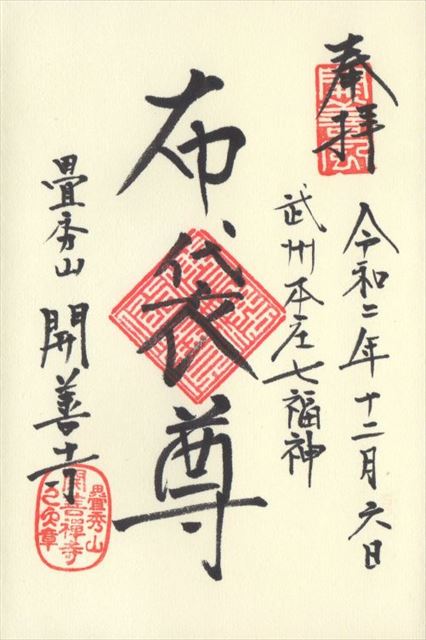 奉拝
令和二年十二月六日
武州本庄七福神
布袋尊
畳秀山 開善寺
畳秀山
開善禅寺